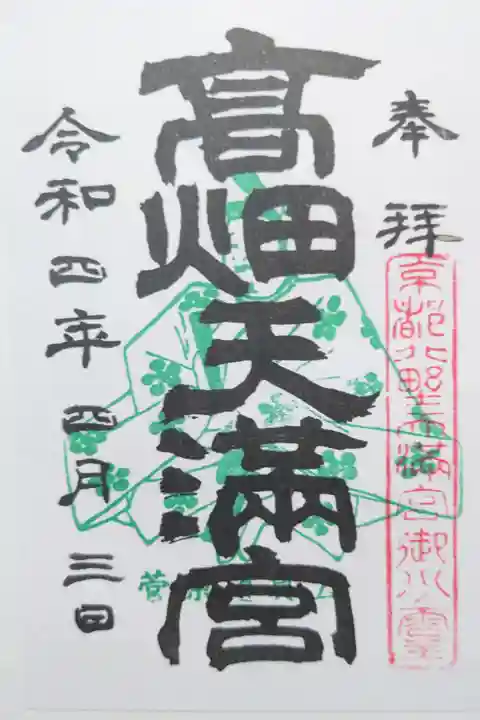 奉拝
京都北野天満宮御分霊
髙畑天満宮
令和四年四月三日